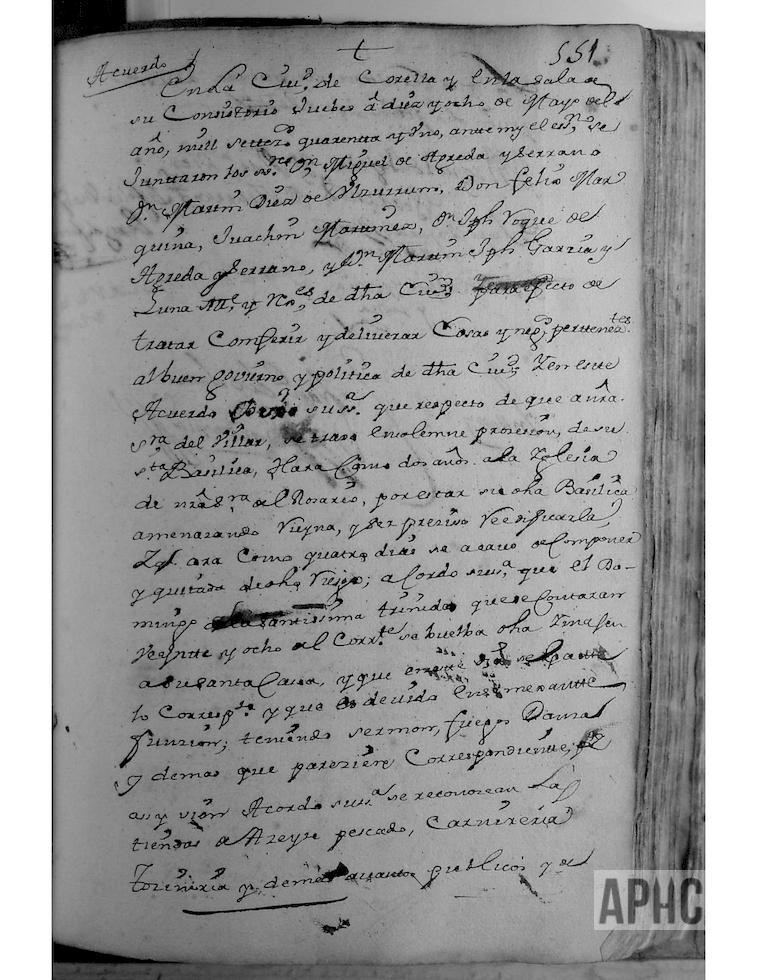 551
Acuerdo
En La Ciud. de Corella y En la sala de
su Consistorio Juebes â diez y ocho de Mayo del
año, mill settezs quarentta y Vno, ante my el essno, se
Junttaron los ssres Dn Miguel de Apreda y serrano
Dn Martin Diez de Vzurrum, Don felix Mar
quina, Juachin Martinez, Dn Jph Voque de
Apreda y serrano, y Dn Martin Jph Garzia y
Luna Alle y Res de dha Ciud para efecto de
tratar Comferir y deliverar Cosas y negos pertenentes
al buen govierno y politica de dha Ciud, Y en este
Acuerdo su sa que respecto de que a nrâ
sra del Villar, se trajo En solemne prosesion, de su
sta Basilica, Hara Como dos años a la Yglesia
de nrâ sra del Rosario, por estar su dha Basilica
amenazando Ruyna, y ser preziso Reedificarla
Y qe ora Como quatro dias se acavo de Componer
y quitada de dho Riesgo; acordo su sa que el Do-
mingo de la santissima trinidad que se Contaran
Veyntte y ocho del Corrte se buelba dha Ymagen
a su santa Cassa, y que se
lo Correspte y que es devido En semexantte
funzion; teniendo sermon, fuegos Danza
y demas que pareziere Correspondiente;
assy vien Acordo su sa se reconozcan las
tiendas de Azeyte pescado, Carnizeria
Tozineria y demas avastos publicos y de
APHC